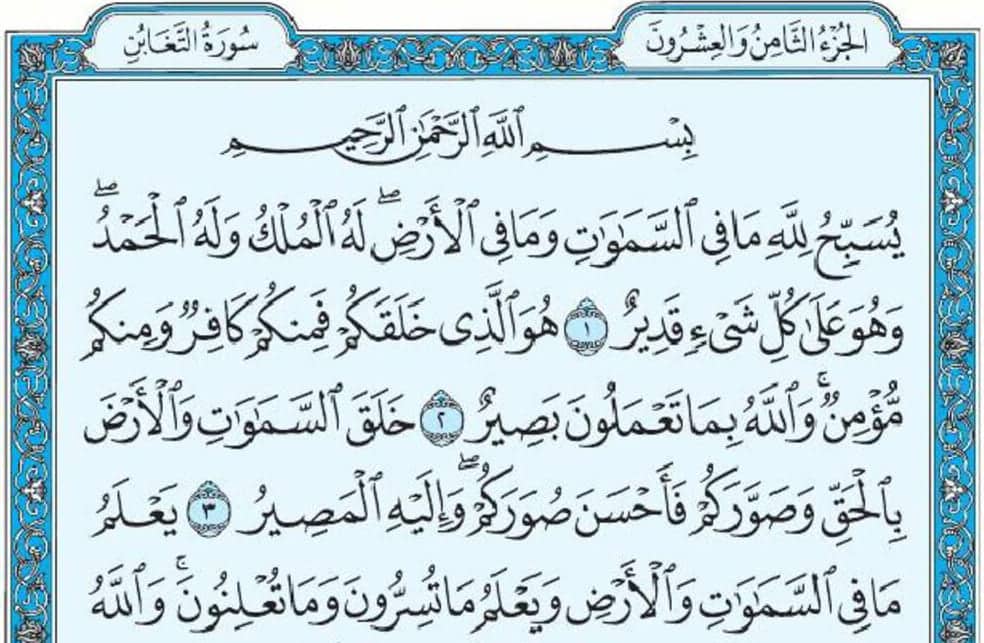 الجُزْءُ الثَّامِنُ وَالعِشْرُونَ
سُورَةُ التَّغَابُنِ
بِسْمِ ٱللَّهِ ٱلرَّحْمَٰنِ ٱلرَّحِيمِ
يُسَبِّحُ لِلَّهِ مَا فِي ٱلسَّمَٰوَٰتِ وَمَا فِي ٱلْأَرْضِۖ لَهُ ٱلْمُلْكُ وَلَهُ ٱلْحَمْدُۖ
وَهُوَ عَلَىٰ كُلِّ شَىْءٍ قَدِيرٌ ١ هُوَ ٱلَّذِى خَلَقَكُمْ فَمِنكُمْ كَافِرٌ وَمِنكُم
مُّؤْمِنٌۚ وَٱللَّهُ بِمَا تَعْمَلُونَ بَصِيرٌ ٢ خَلَقَ ٱلسَّمَٰوَٰتِ وَٱلْأَرْضَ
بِٱلْحَقِّ وَصَوَّرَكُمْ فَأَحْسَنَ صُوَرَكُمْۖ وَإِلَيْهِ ٱلْمَصِيرُ ٣ يَعْلَمُ
مَا فِي ٱلسَّمَٰوَٰتِ وَٱلْأَرْضِ وَيَعْلَمُ مَا تُسِرُّونَ وَمَا تُعْلِنُونَۚ وَٱللَّهُ